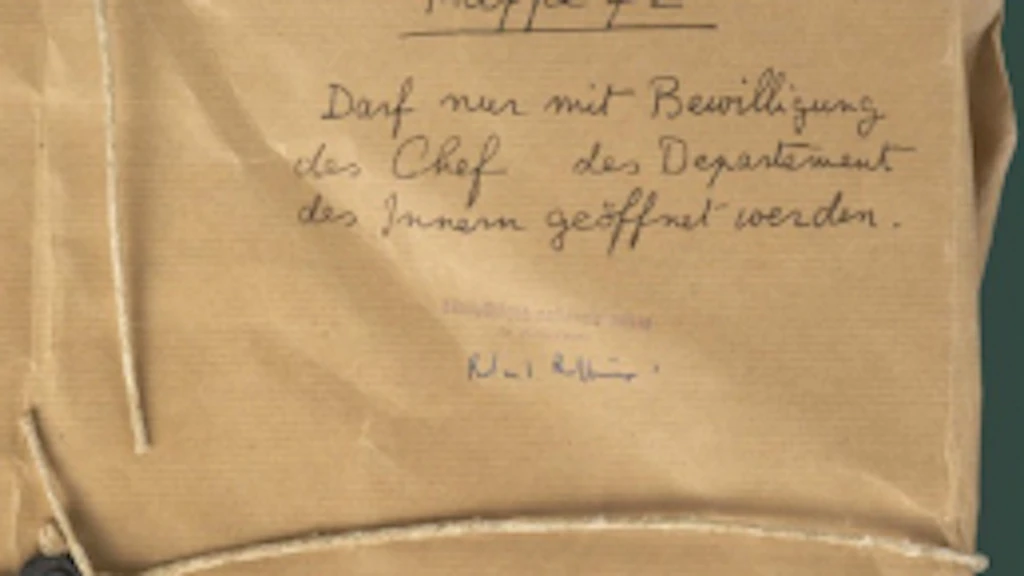 Mappe
Darf nur mit Bewilligung
des Chef des Departement
des Innern geöffnet werden.